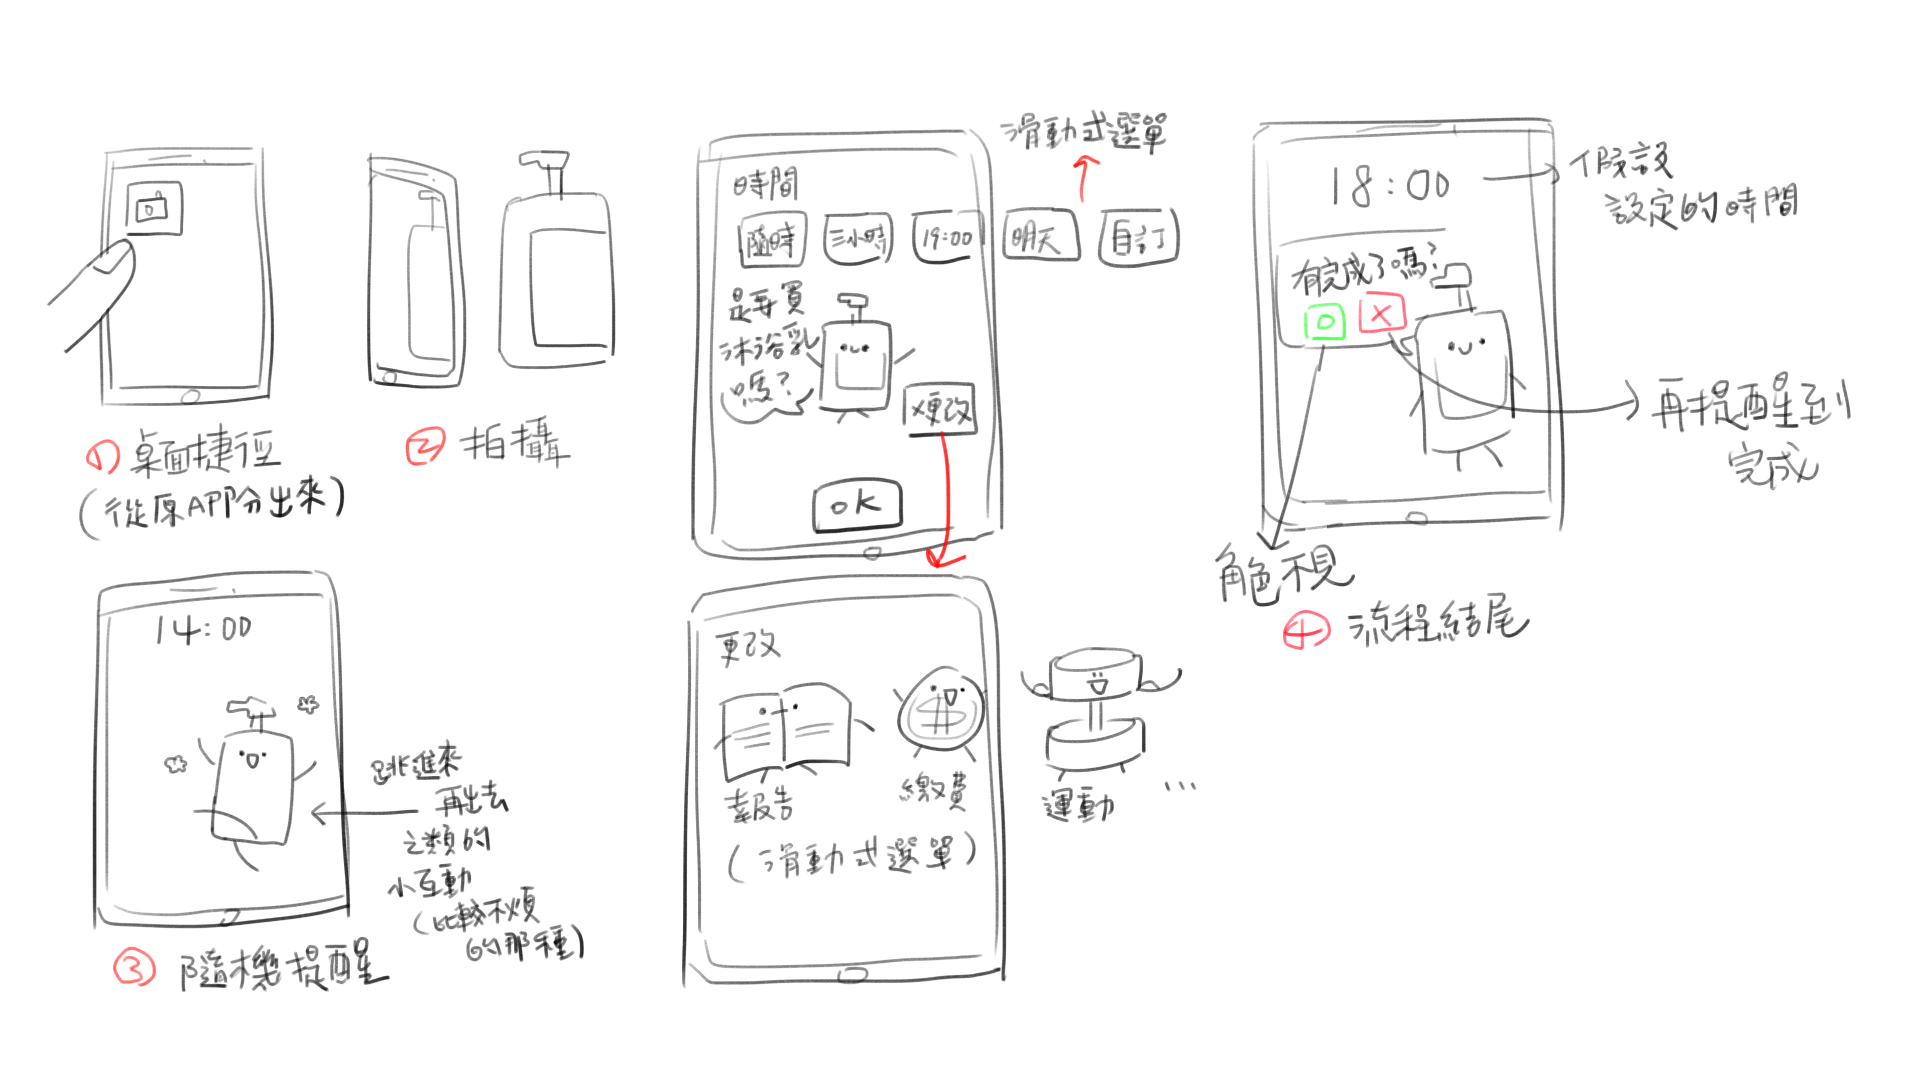 ① 桌面捷徑
(從原APP分出來)
② 拍攝
時間
隨時
三小時
19:00
明天
自訂
滑動式選單
是要買
沐浴乳
嗎?
更改
OK
更改
報告
繳費
運動
...
(滑動式選單)
14:00
跳進來
再出去
之類的
小互動
(比較不煩
的那種)
③ 隨機提醒
18:00
假設
設定的時間
有完成了嗎?
O
X
再提醒到
完成
角色不見
④ 流程結尾